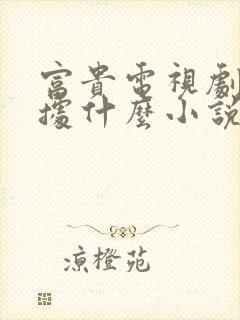 富貴電視劇
據什麼小說
涼橙苑